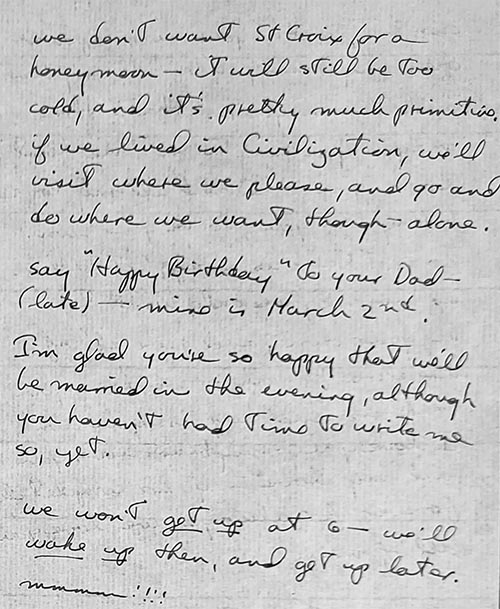 we don't want St Croix for a
honeymoon – it will still be too
cold, and it's pretty much primitive.
if we lived in Civilization, we'll
visit where we please, and go and
do where we want, though – alone.
say "Happy Birthday" to your Dad –
(late) – mine is March 2nd.
I'm glad you're so happy that we'll
be married in the evening, although
you haven't had time to write me
so, yet.
we won't get up at 6 – we'll
wake up then, and get up later.
mmmmm!!!!